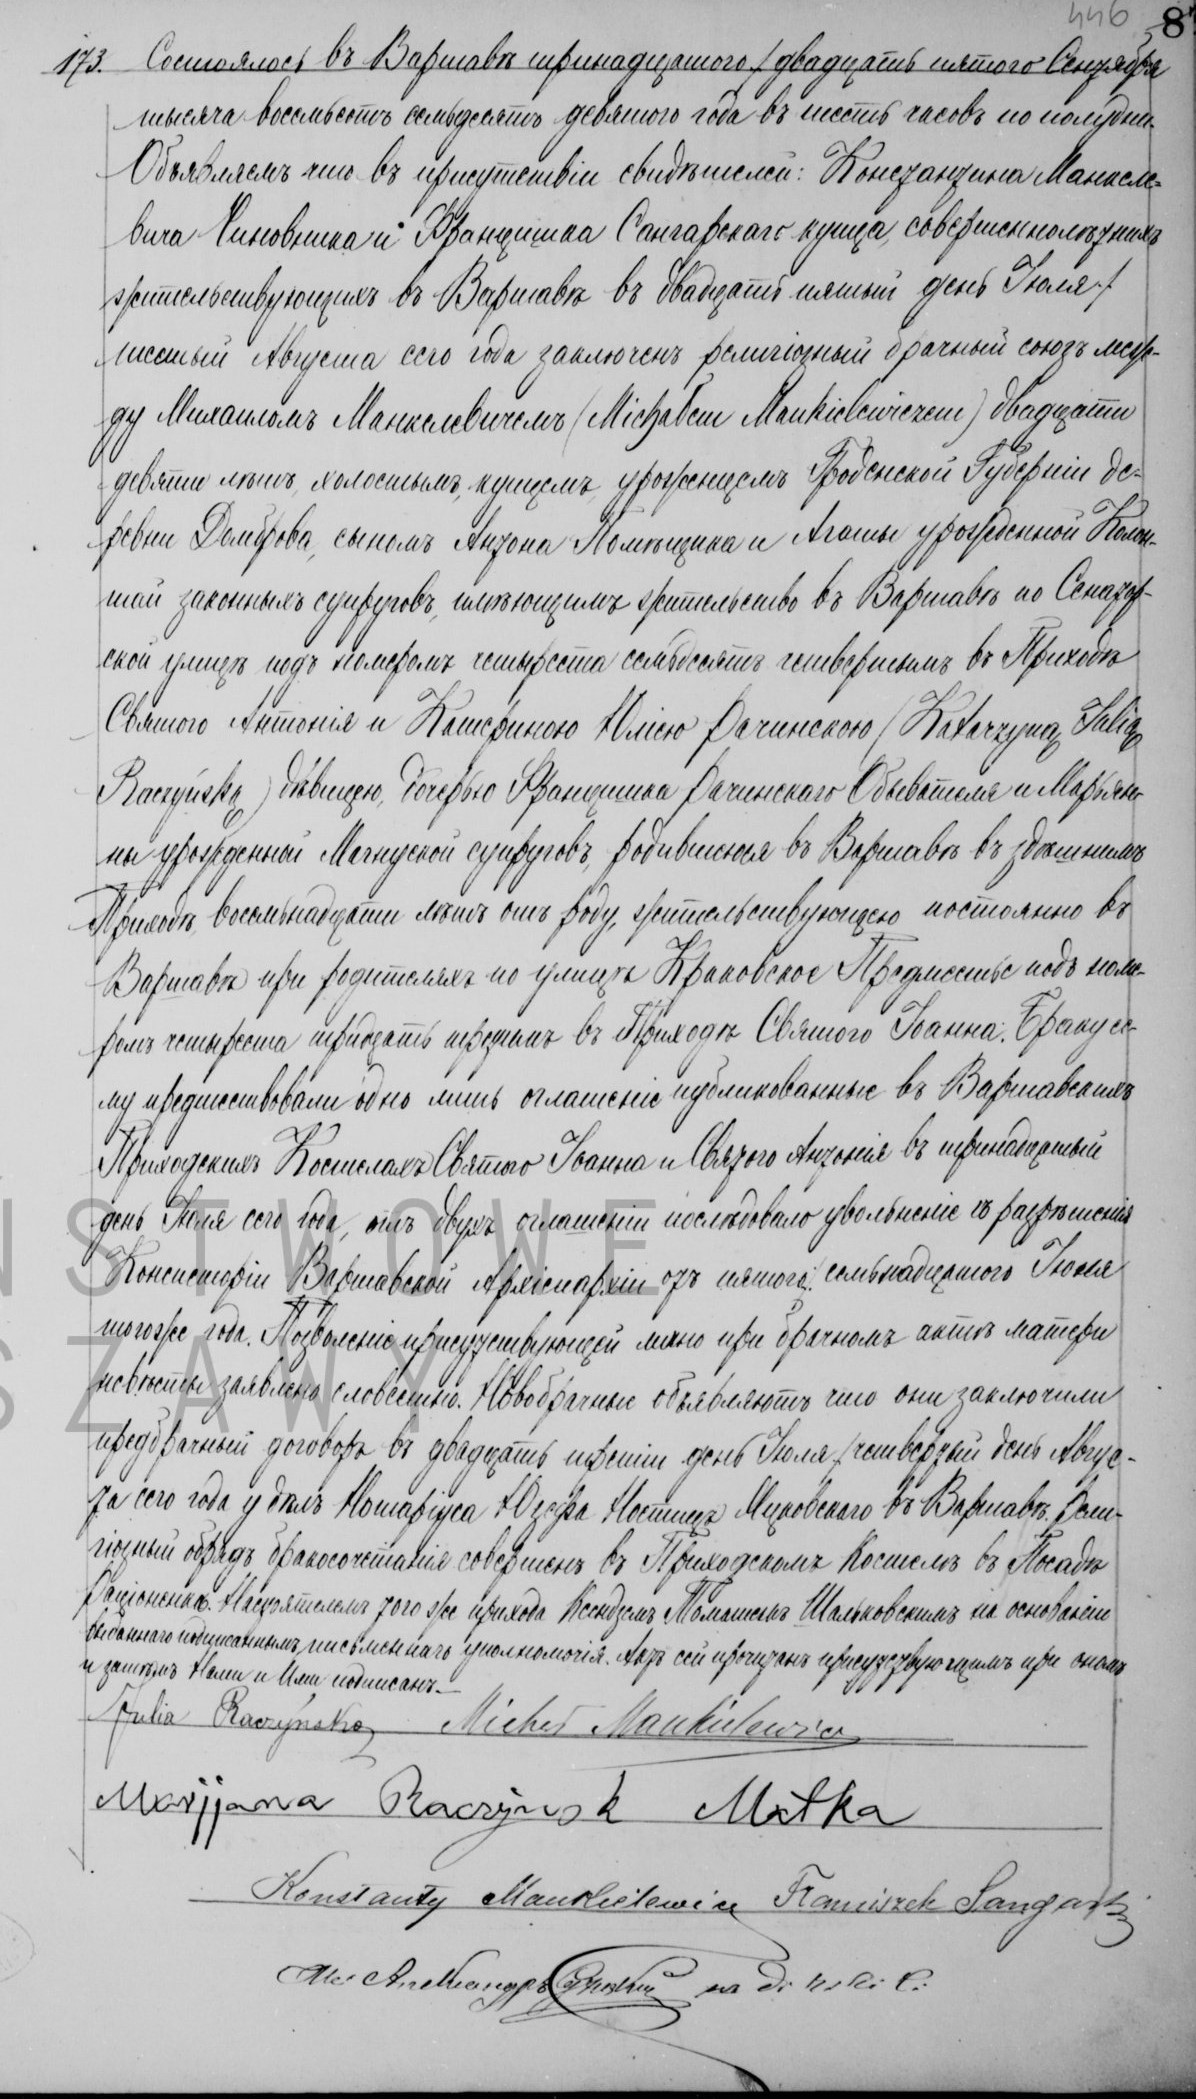 446 8
173. Состоялось въ Варшавѣ тринадцатого / двадцать пятого Сентября
тысяча восемьсотъ семьдесятъ девятого года въ шесть часовъ по полудни.
Объявляемъ что въ присутствіи свидѣтелей: Константина Манкеле-
вича Чиновника и Францишка Сангарскаго купца, совершеннолѣтнихъ
жительствующихъ въ Варшавѣ въ двадцать пятый день Іюля /
шестый Августа сего года заключенъ религіозный брачный союзъ меж-
ду Михаиломъ Манкелевичемъ (Michałem Mankielewiczem) двадцати
девяти лѣтъ, холостымъ, купцемъ, урожденцемъ Гродненской Губерніи де-
ревни Домброва, сыномъ Антона Помѣщика и Агаты урожденной Колон-
тай законныхъ супруговъ, имѣющимъ жительство въ Варшавѣ по Сенатор-
ской улицѣ подъ номеромъ четыреста семьдесятъ четвертымъ въ Приходѣ
Святого Антонія и Катериною Юліею Рачинскою (Katarzyną Julią
Raczyńską) дѣвицею, дочерью Францишка Рачинскаго Обывателя и Марьян-
ны урожденной супруговъ, родившеюся въ Варшавѣ въ здѣшнемъ
Приходѣ, восемьнадцати лѣтъ отъ роду, жительствующею постоянно въ
Варшавѣ при родителяхъ по улицѣ Краковское Предмесьтье подъ номе-
ромъ четыреста тридцать третьимъ въ Приходѣ Святого Іоанна. Браку се-
му предшествовали одно лишь оглашеніе публикованные въ Варшавскихъ
Приходскихъ Костелахъ Святого Іоанна и Святого Антонія въ тринадцатый
день Іюля сего года, отъ двухъ оглашеніи послѣдовало увольненіе съ разрѣшенія
Консисторіи Варшавской Архіепархіи отъ пятого / семьнадцатого Іюня
тогоже года. Позволеніе присутствующей лично при брачномъ актѣ матери
невѣсты заявлено словесно. Новобрачные объявляютъ что они заключили
предбрачный договоръ въ двадцать третій день Іюля / четвертый день Авгус-
та сего года у дѣлъ Нотаріуса Юзефа Ностицъ въ Варшавѣ. Рели-
гіозный обрядъ бракосочетанія совершенъ въ Приходскомъ Костелѣ въ Посадѣ
Настоятелемъ того же прихода Ксендзомъ Томашемъ Шальковскимъ на основаніи
выданнаго подписаннымъ письменнаго уполномочія. Актъ сей прочитанъ присутствующимъ при ономъ
и затѣмъ Нами и Ими подписанъ.—
Julia Raczyńska Michał Mankielewicz
Marjjana Raczÿnsk Matka
Konstanty Mankielewicz Franciszek Sangarski